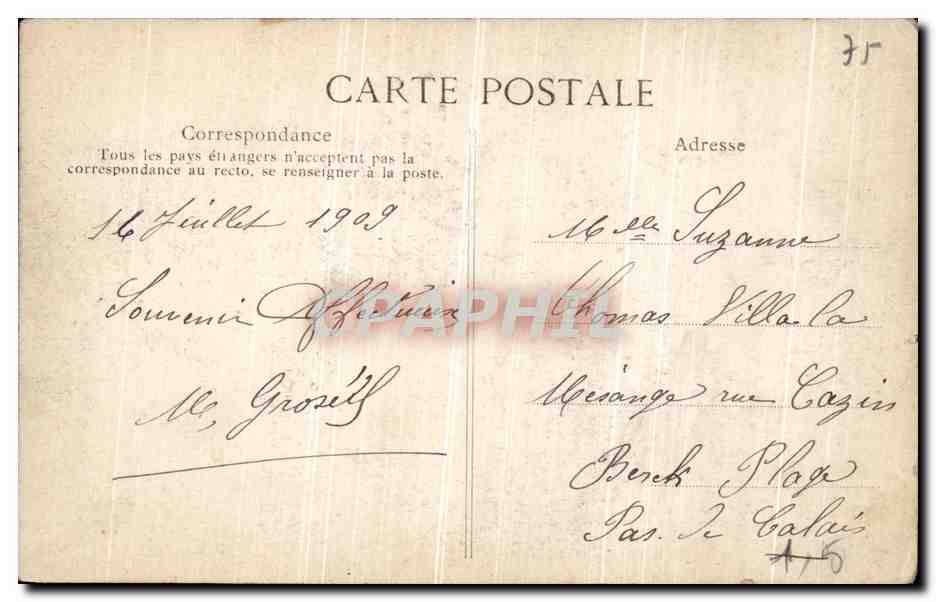 75
CARTE POSTALE
Correspondance
Tous les pays étrangers n'acceptent pas la
correspondance au recto, se renseigner à la poste.
16 Juillet 1909
Souvenir Affectueux
M,
Adresse
Melle Suzanne
Thomas Villa la
Mésange rue Cazin
Berck Plage
Pas. de Calais
CPAPHIL